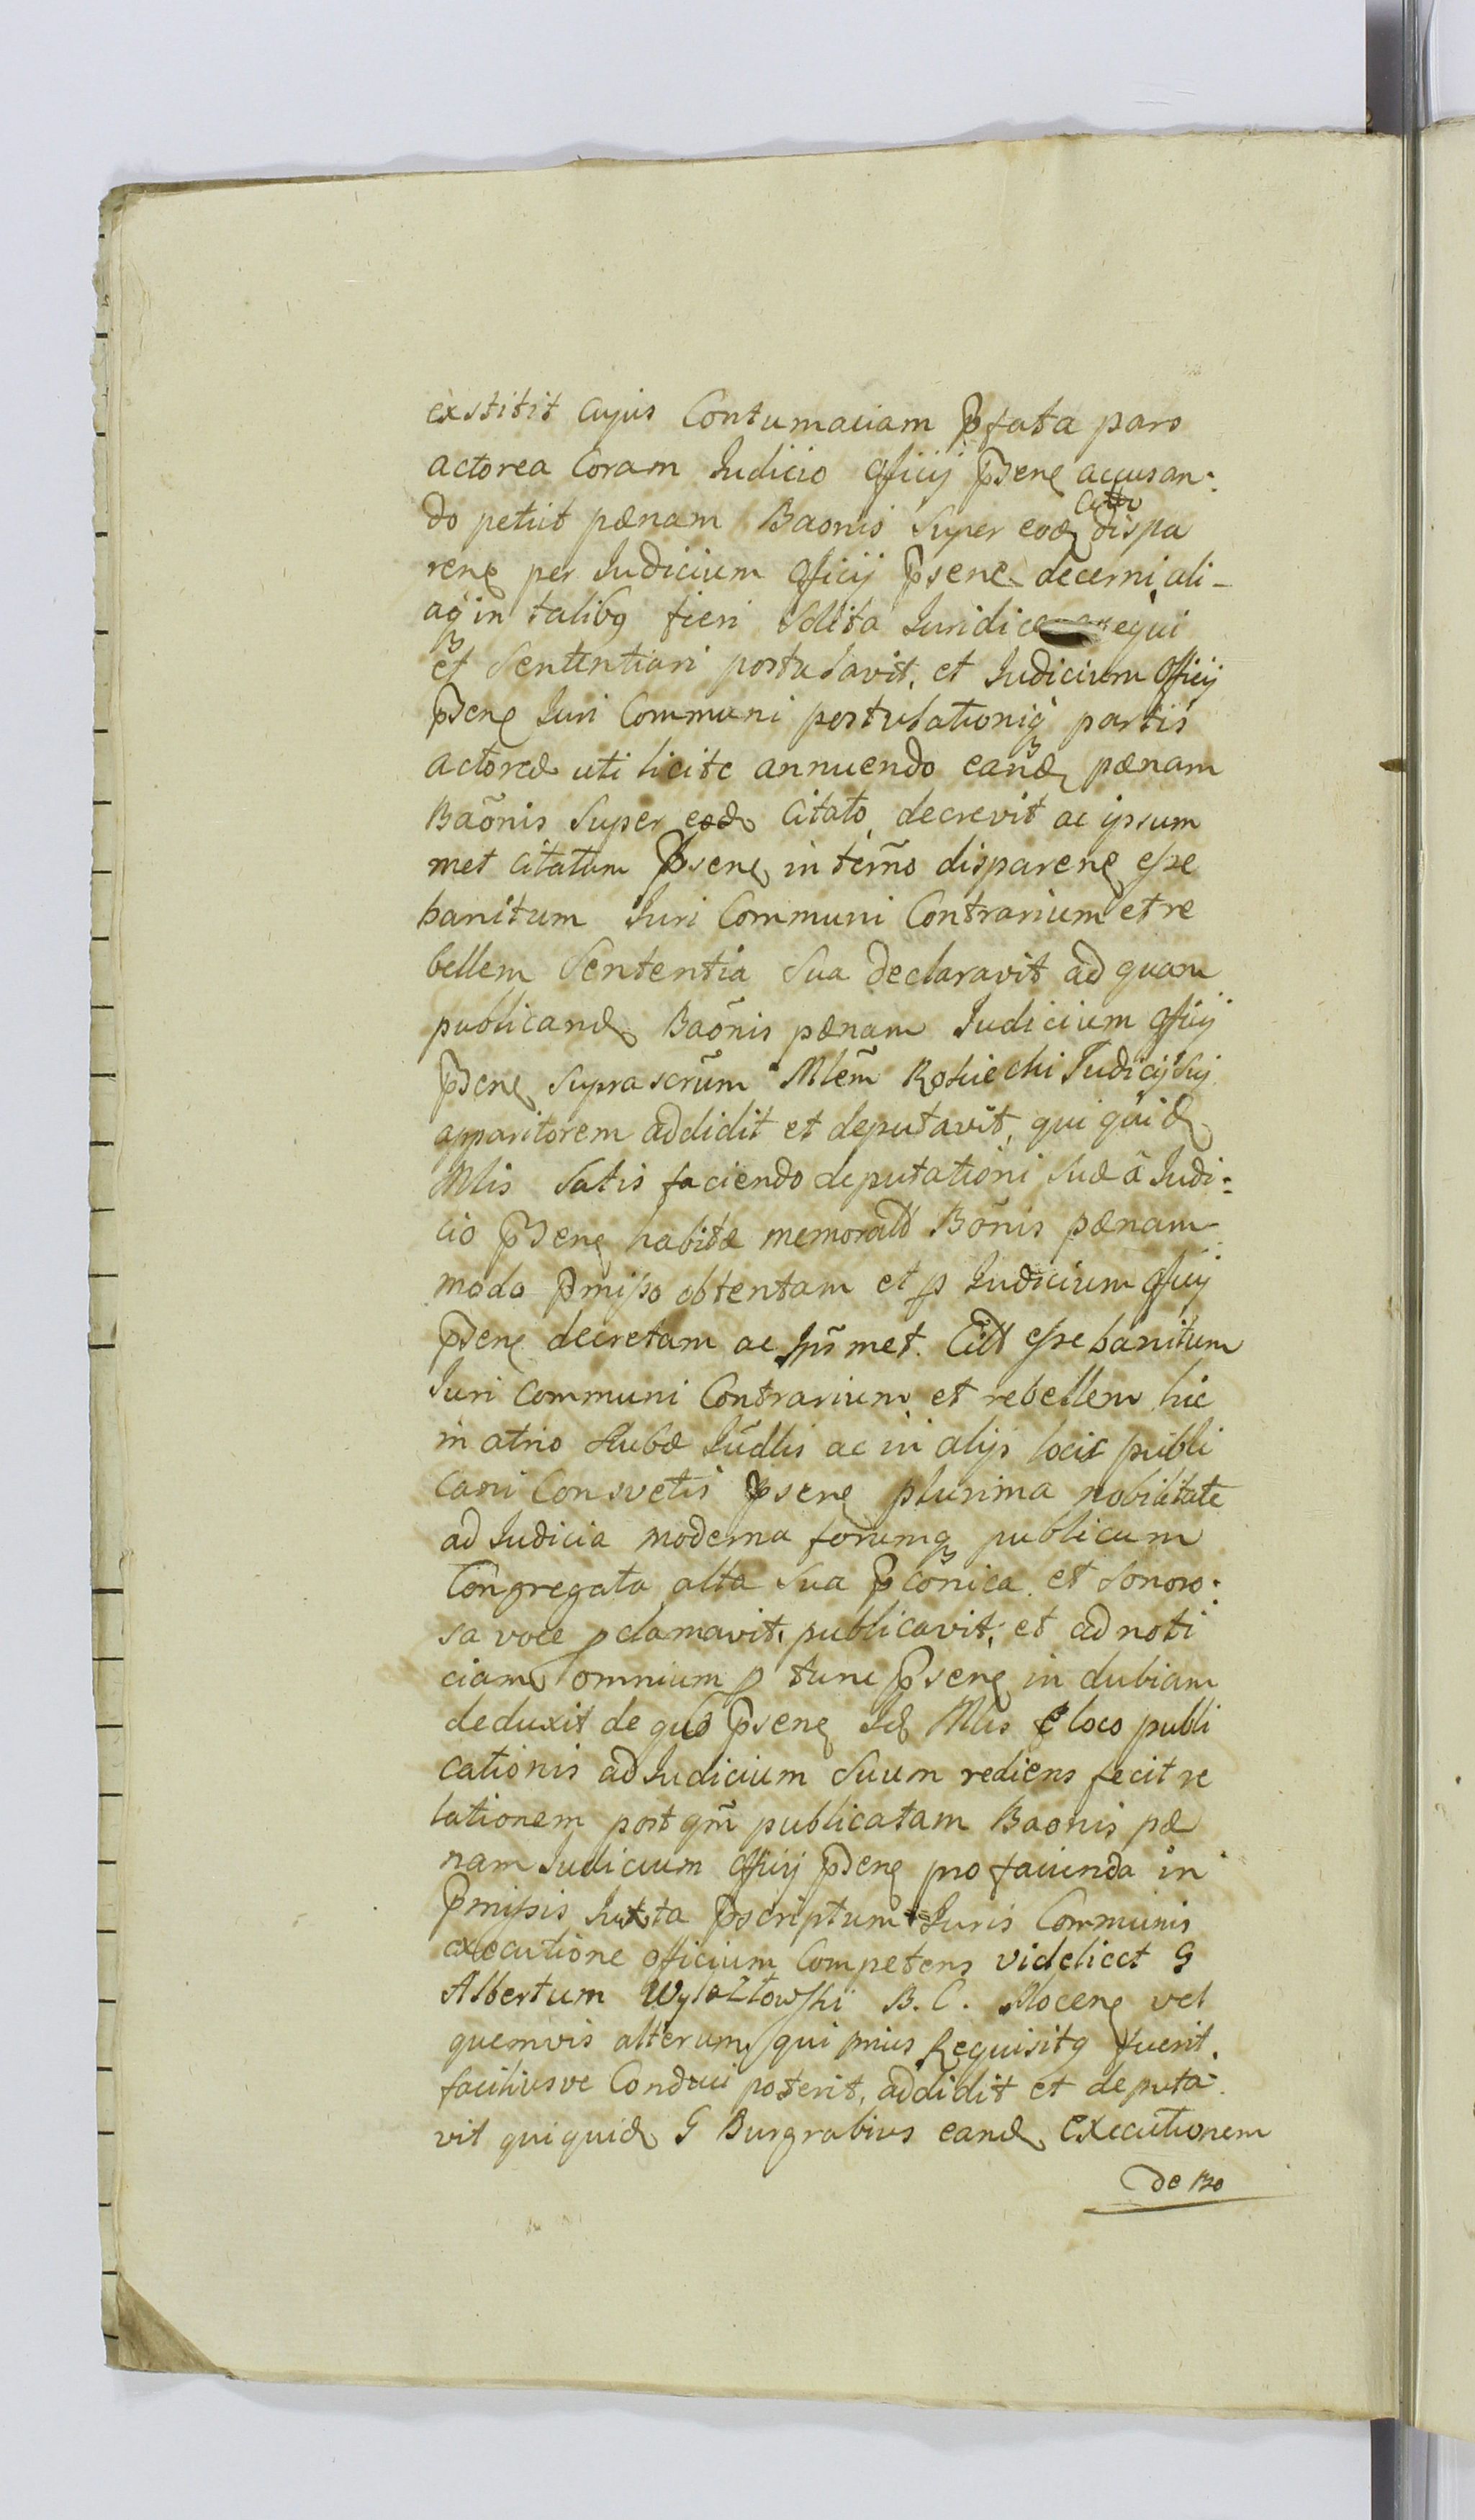 exstitit cujus Contumaciam pfata pars
actorea Coram Iudicio Officij psene accusan-
do petiit pænam Baonis super eod citto dispa
rene per Iudicium Officij psene decerni, ali-
aq in talibq fieri solita Iuridice exequi
et Sententiari postulavit, et Iudicium Officij
psene Iuri Communi postulationiq partis
actoreæ uti licite annuendo eand pænam
Baõnis super eod Citato, decrevit ac ipsum
met citatum psene in term̃o disparene esse
banitum Iuri Communi Contrarium et re
bellem Sententia sua declaravit ad quam
publicand Baõnis pænam Iudicium Officij
psene suprascrũm Mlem̃ Iudicij Sui
apparitorem addidit et deputavit, qui quid
Mlis satis faciendo deputationi suæ ã Iudi-
cio psene habitæ memoratã Bõnis pænam
modo pmisso obtentam et p Iudicium Officij
psene decretam ac Ips̃met Citt esse banitum
Iuri Communi Contrarium et rebellem hic
in atrio stubæ Iũdlis ac in alijs locis publi
cari Consvetis psene plurima nobilitate
ad Iudicia moderna forumq publicum
Congregata alta sua p̃cõnica et sonoro-
sa voce pclamavit, publicavit, et ad noti
ciam omnium p tunc psene in dubiam
deduxit de quo psene Id Mlis e loco publi
cationis ad Iudicium suum rediens fecit re
lationem post qm̃ publicatam Baonis pæ
nam Iudicium Officij psene pro facienda in
pmissis Iuxta pscriptum Iuris Communis
executione officium Competens videlicet G
Albertum B. C. vel
quemvis alterum qui prius Requisitq fuerit
faciliusve Conduci poterit, addidit et deputa-
vit qui quid G Burgrabius eand executionem
de Bo